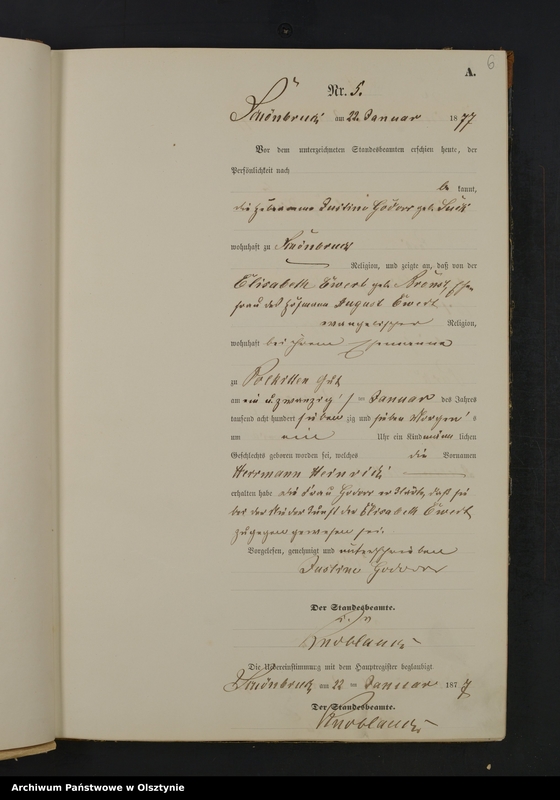 6
A.
Nr. 5.
Schönbruch am 22. Januar 1877
Vor dem unterzeichneten Standesbeamten erschien heute, der
Persönlichkeit nach
be kannt,
die Hebeamme Justine Godorr geb.
wohnhaft zu Schönbruch
Religion, und zeigte an, daß von der
Elisabeth Ewert geb. Ehe-
frau des August Ewert
evangelischer Religion,
wohnhaft bei ihrem Ehemanne
zu Polkitten
am ein u. zwanzig = Januar des Jahres
tausend acht hundert sieben zig und sieben Morgens
um ein Uhr ein Kind männ lichen
Geschlechts geboren worden sei, welches die Vornamen
Herrmann Heinrich
erhalten habe die Frau Godorr erklärte, daß sie
bei der Niederkunft der Elisabeth Ewert
zugegen gewesen sei.
Vorgelesen, genehmigt und unterschrieben
Justine Godorr
Der Standesbeamte.
Knoblauch
Die Uebereinstimmung mit dem Hauptregister beglaubigt
Schönbruch am 22 = Januar 1877
Der Standesbeamte.
Knoblauch
Archiwum Państwowe w Olsztynie